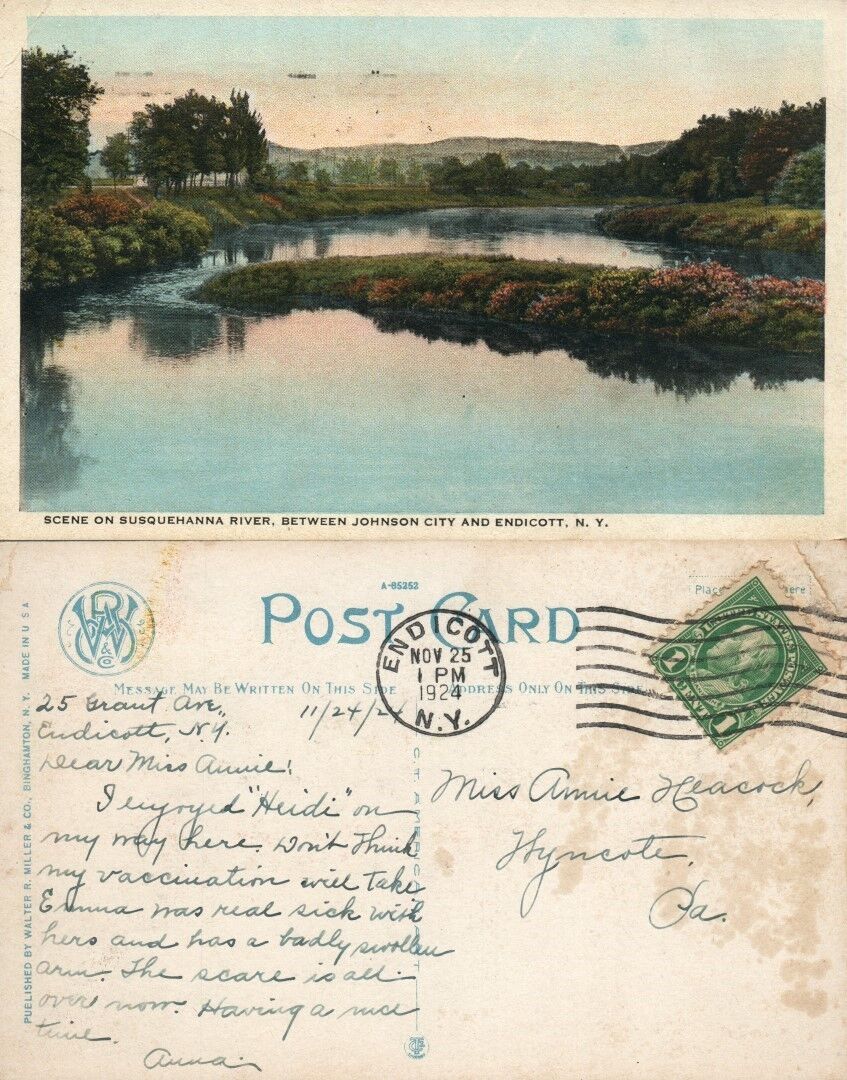 SCENE ON SUSQUEHANNA RIVER, BETWEEN JOHNSON CITY AND ENDICOTT, N. Y.
A-85252
POST CARD
Place
here
ENDICOTT
NOV 25
1 PM
1924
N.Y.
MESSAGE MAY BE WRITTEN ON THIS SIDE
ADDRESS ONLY ON THIS SIDE
1
1
& Co
PUBLISHED BY WALTER R. MILLER & CO., BINGHAMTON, N. Y. MADE IN U S A
C. T. AMERICAN ART
25 Grant Ave., 11/24/24
Endicott, N.Y.
Dear Miss Annie:
I enjoyed "Heidi" on
my way here. Don't think
my vaccination will take
Emma was real sick with
hers and has a badly swollen
arm. The scare is all
over now. Having a nice
time.
Anna.
Miss Annie Heacock,
Wyncote,
Pa.